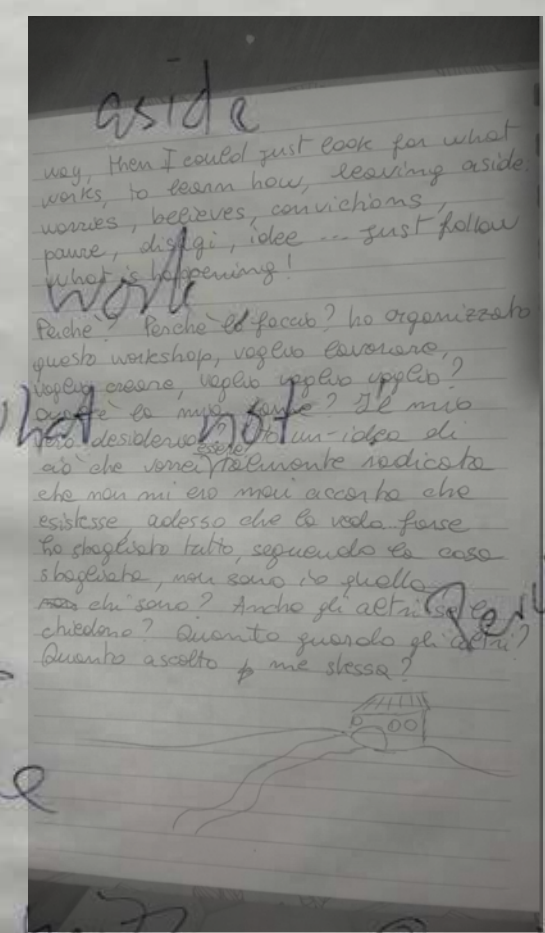 aside
way, then I could just look for what
works, to learn how, leaving aside
worries, believes, convictions,
paure, disagi, idee ... just follow
what is happening!
work
Perché? Perchè lo faccio? ho organizzato
questo workshop, voglio lavorare,
voglio creare, voglio voglio voglio?
what not
è la mia ? Il mio
vero desiderio? Ho un-idea di
ciò che vorrei essere talmente radicata
che non mi ero mai accorta che
esistesse, adesso che la vedo forse
ho sbagliato tutto, seguendo la cosa
sbagliata, non sono io quella
chi sono? Anche gli altri se lo
chiedono? Quanto guardo gli altri?
Quanto ascolto me stessa?